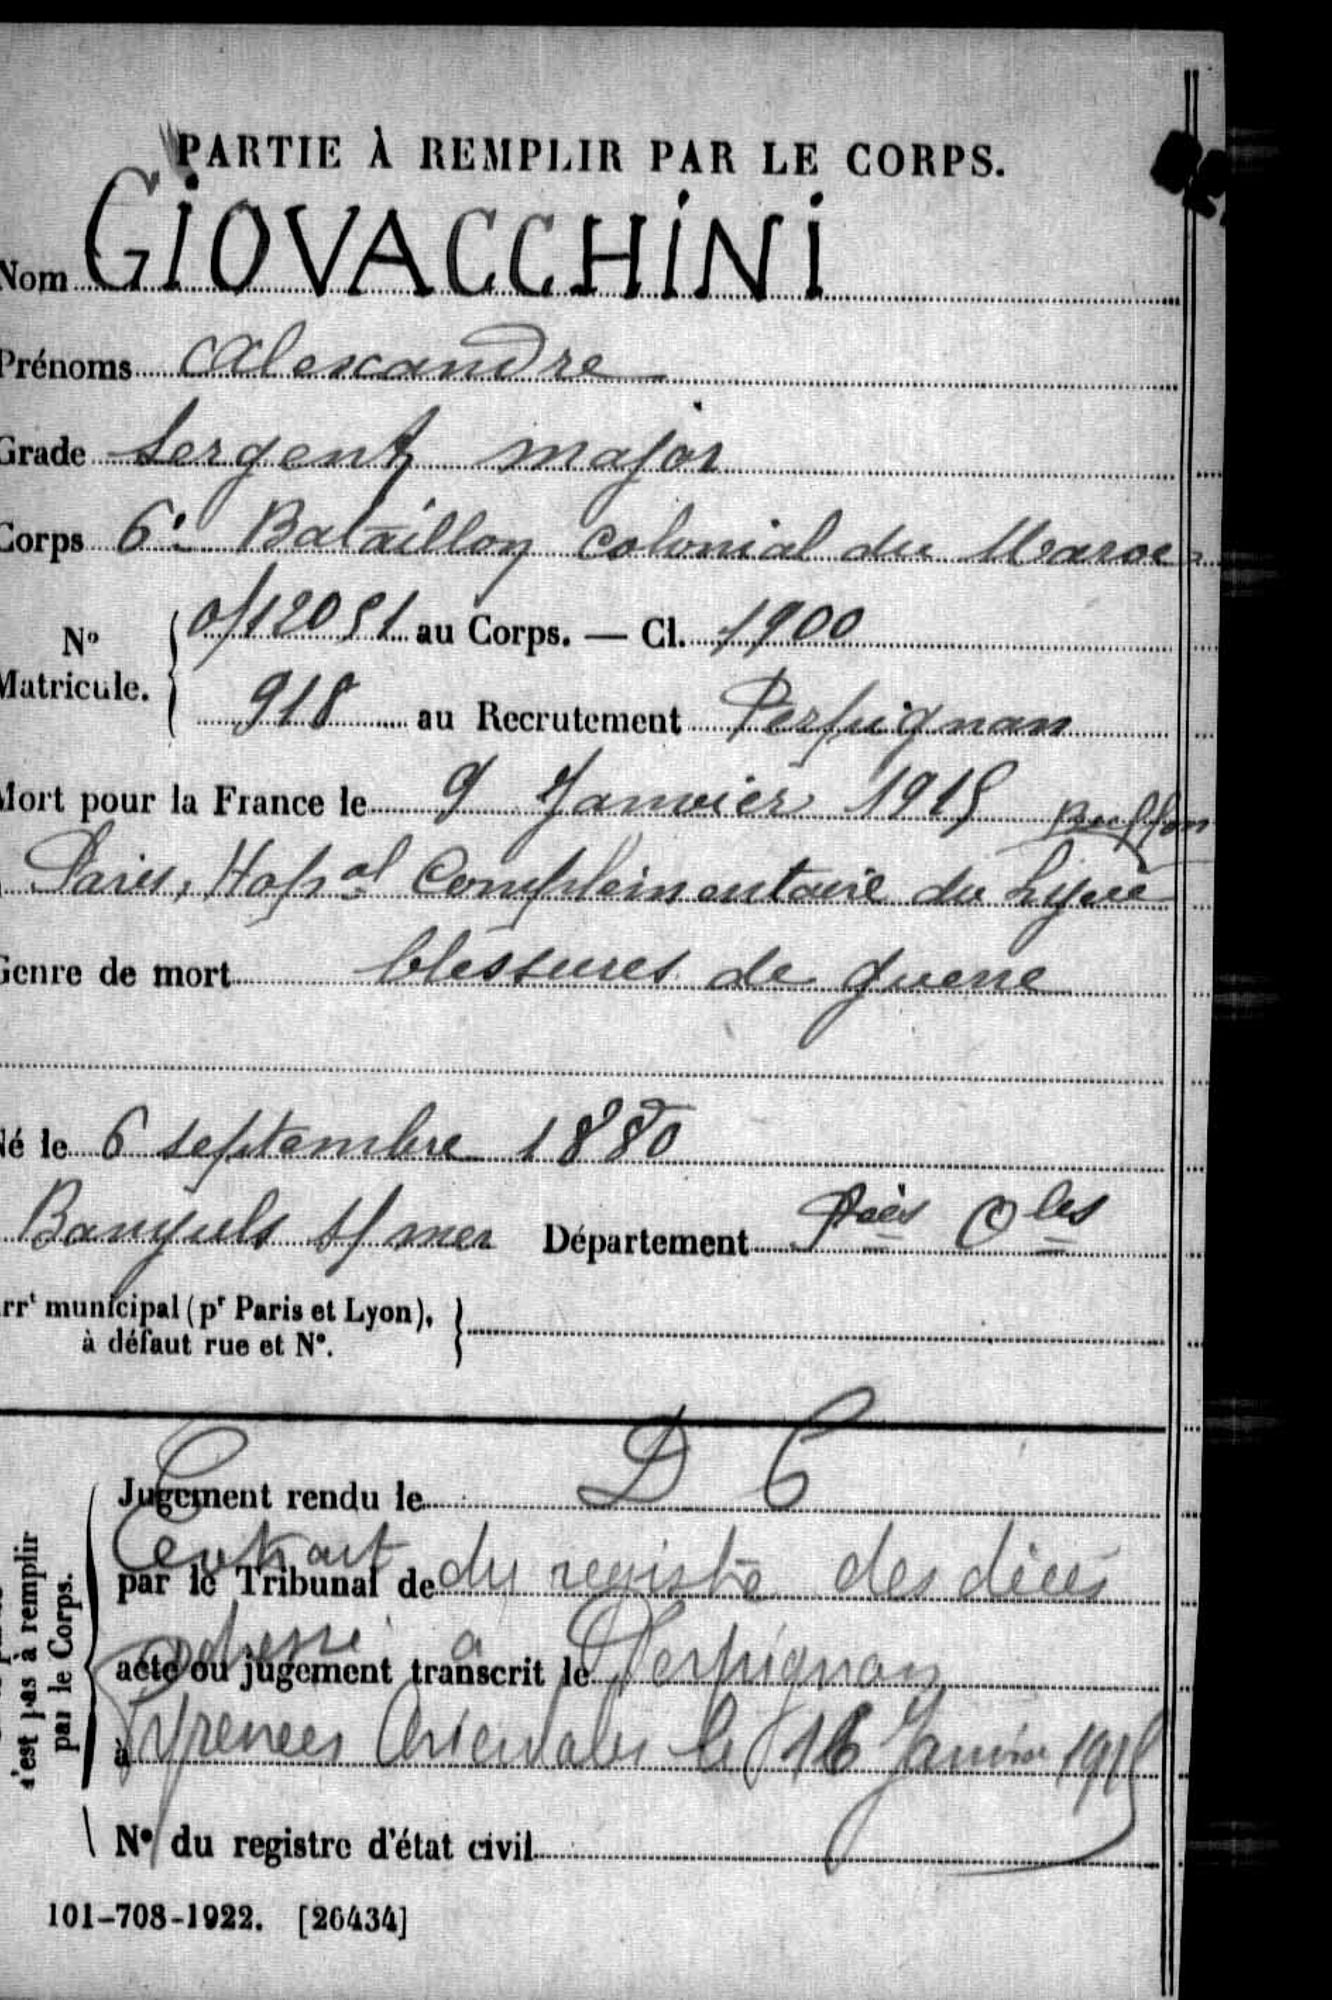 PARTIE À REMPLIR PAR LE CORPS.
Nom GIOVACCHINI
Prénoms Alexandre
Grade Sergent major
Corps 6e Bataillon colonial du Maroc
No Matricule. 0/12051 au Corps. — Cl. 1900
918 au Recrutement Perpignan
Mort pour la France le 9 Janvier 1915
Buffon
Paris, Hopal Complémentaire du Lycée
Genre de mort blessures de guerre
Né le 6 septembre 1880
Banyuls s/ mer Département Pées Oles
rrt municipal (pr Paris et Lyon),
à défaut rue et No.
D C
Jugement rendu le
Extrait du registre des décès
par le Tribunal de
adressé a Perpignan
acte ou jugement transcrit le
Pyrenees Orientales le 16 Janvier 1915
à
No du registre d'état civil
n'est pas à remplir
par le Corps.
101-708-1922. [26434]